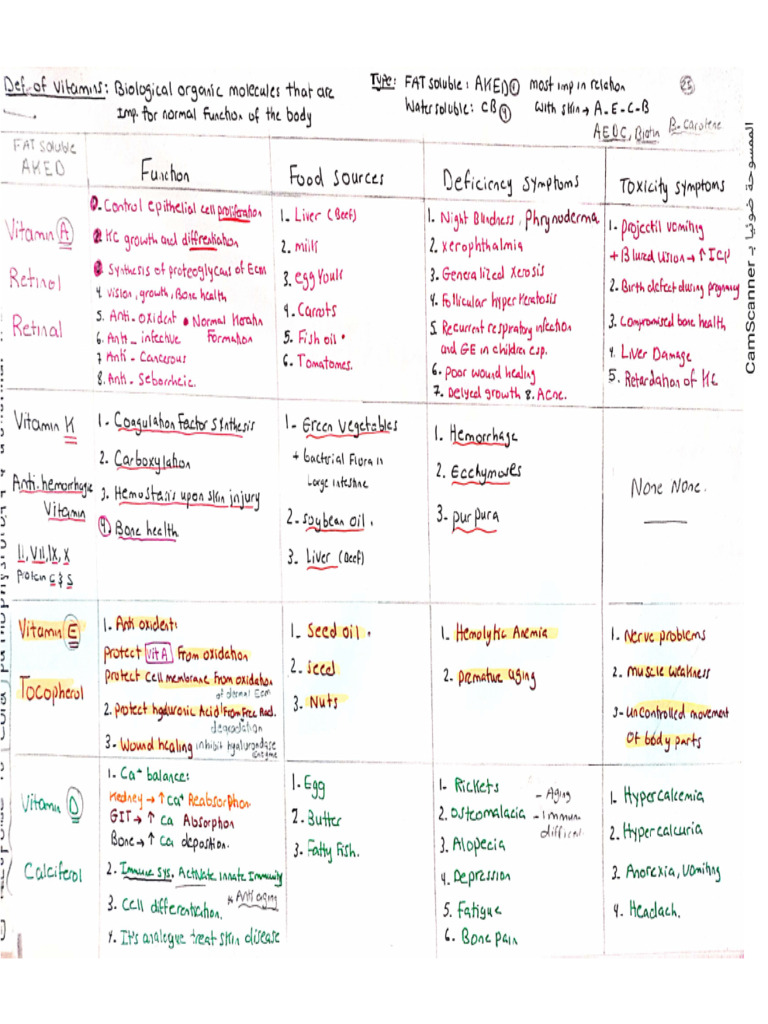 Def. of Vitamins: Biological organic molecules that are
Imp. for normal function of the body
Type: FAT soluble: AKED ① most imp in relation
Water soluble: CB ⑨ with skin → A-E-C-B
AEDC, Biotin B-carotene
25
FAT soluble
AKED
Function
Food sources
Deficiency symptoms
Toxicity symptoms
Vitamin A
Retinol
Retinal
1. Control epithelial cell proliferation
2. KC growth and differentiation
3. Synthesis of proteoglycans of Ecm
4. vision, growth, Bone health
5. Anti-oxident • Normal Keratin
6. Anti-infective Formation
7. Anti-Cancerous
8. Anti-Seborrheic.
1- Liver (Beef)
2. milk
3. egg Youlk
4. Carrots
5. Fish oil •
6. Tomatomes.
1. Night Blindness, Phrynoderma
2. xerophthalmia
3. Generalized Xerosis
4. Follicular hyper Keratosis
5. Recurrent respiratory infection
and GE in children esp.
6. Poor wound healing
7. Delyed growth 8. Acne.
1- Projectil vomiting
+ Blured vision → ↑ ICP
2. Birth defect during pregnancy
3. Compromised bone health
4. Liver Damage
5. Retardation of KC
Vitamin K
Anti-hemorrhagic
Vitamin
II, VII, IX, X
Protein C & S
1- Coagulation Factor Synthesis
2. Carboxylation
3. Hemostasis upon skin injury
4) Bone health
1- Green Vegetables
+ bacterial Flora in
Large intestine
2- Soybean oil.
3. Liver (Beef)
1. Hemorrhage
2. Ecchymoses
3- purpura
None None.
Vitamin E
Tocopherol
1. Anti oxident:
protect Vit A From oxidation
protect Cell membrane From oxidation
of dermal Ecm
2. protect hyaluronic Acid From Free Rad.
degradation
3- Wound healing inhibit hyalurondase
enzyme
1. Seed oil.
2. seed
3. Nuts
1. Hemolytic Anemia
2. premature aging
1. Nerve problems
2. muscle weakness
3- uncontrolled movement
Of body parts
Vitamin D
Calciferol
1. Ca⁺ balance:
Kedney → ↑ Ca⁺ Reabsorption
GIT → ↑ Ca Absorption
Bone → ↑ Ca deposition.
2. Immune sys. Activate innate Immunity
* Anti aging
3. Cell differentiation.
4. It's analogue treat skin disease
1. Egg
2- Butter
3. Fatty Fish.
1- Rickets - Aging
2. Osteomalacia - Immun
3. Alopecia
4. Depression
5. Fatigue
6. Bone pain
1. Hypercalcemia
2. Hypercalcuria
3. Anorexia, Vomiting
4. Headach.
الممسوحة ضوئيا بـ CamScanner